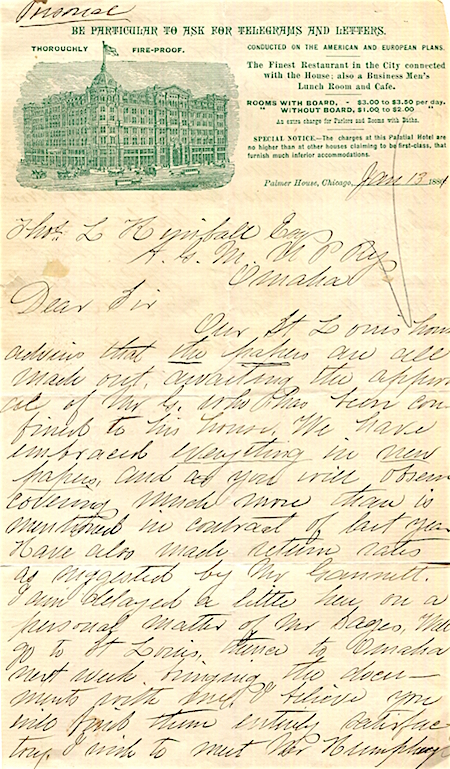 Personal
BE PARTICULAR TO ASK FOR TELEGRAMS AND LETTERS.
THOROUGHLY FIRE-PROOF.
CONDUCTED ON THE AMERICAN AND EUROPEAN PLANS.
The Finest Restaurant in the City connected
with the House; also a Business Men's
Lunch Room and Cafe.
ROOMS WITH BOARD, - $3.00 to $3.50 per day.
WITHOUT BOARD, $1.00 to $2.00 "
An extra charge for Parlors and Rooms with Baths.
SPECIAL NOTICE.—The charges at this Palatial Hotel are
no higher than at other houses claiming to be first-class, that
furnish much inferior accommodations.
Palmer House, Chicago, Jan 13 188
Thos. L Kimball Esq
A. G. M. U P Ry
Omaha
Dear Sir
Our St Louis house
advises that the papers are all
made out, awaiting the approv
al of Mr G. who has been con
fined to his house. We have
embraced everything in new
papers, and as you will observe
covering much more than is
mentioned in contract of last year
Have also made return rates
as suggested by Mr Gannett.
I am delayed a little here on a
personal matter of Mr Will
go to St Louis, thence to Omaha
next week bringing the docu—
ments with me, I believe you
will find them entirely satisfac-
tory. I wish to meet Mr Humphrey